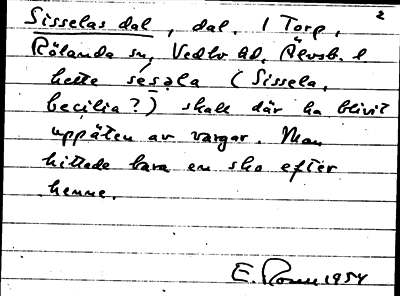 2
Sisselas dal, dal. 1 Torp,
Rölanda sn, Vedbo hd, Älvsb. l
hette sesəla (Sissela,
Cecilia?) skall där ha blivit
uppäten av vargar. Man
hittade bara en sko efter
henne.
E. Rosen 1954